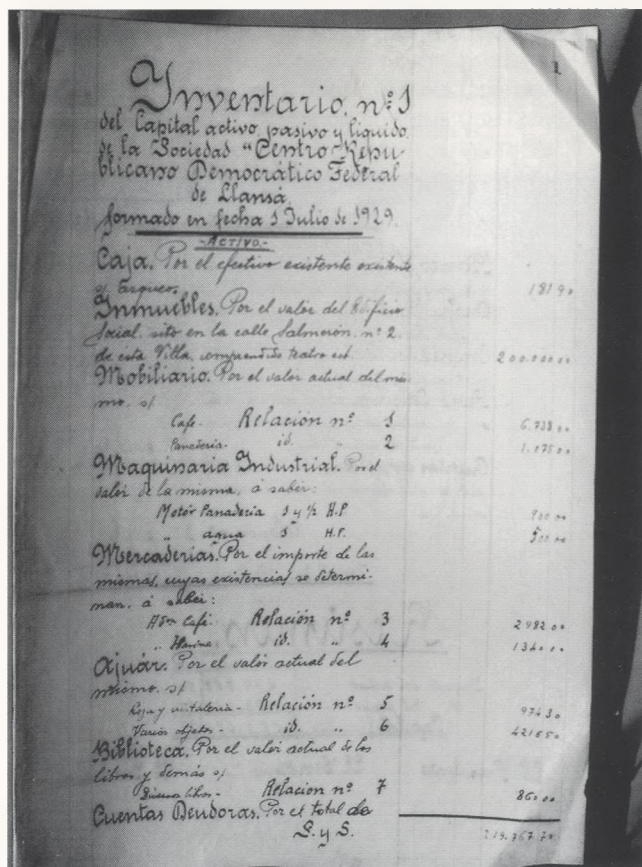 1
Inventario, nº 1
del Capital activo, pasivo y líquido,
de la Sociedad "Centro Repu-
blicano Democrático Federal
de Llansá,
formado en fecha 1 Julio de 1929.
-ACTIVO.-
Caja. Por el efectivo existente existente
s/ Arqueo. 181 90
Inmuebles. Por el valor del Edificio
Social, sito en la calle Salmerón, nº 2
de esta Villa, comprendido teatro
200.000 00
Mobiliario. Por el valor actual del mis-
mo, s/
Café- Relación nº 1 6.738 00
Panadería- id. " 2 1.175 00
Maquinaria Industrial. Por el
valor de la misma, á saber:
Motor Panadería 1 y ½ H.P. 900 00
" agua 1 H.P. 500 00
Mercaderías. Por el importe de las
mismas, cuyas existencias se determi-
nan, á saber:
Café Relación nº 3 2982 00
" Harina id. " 4
Ajuár. Por el valor actual del
mismo, s/
Ropa y cristalería- Relación nº 5 974 30
Varios objetos- id. " 6
Biblioteca. Por el valor actual de los
libros y demás s/
Diversos libros- Relación nº 7 860 00
Cuentas Deudoras. Por el total de
219.767 70